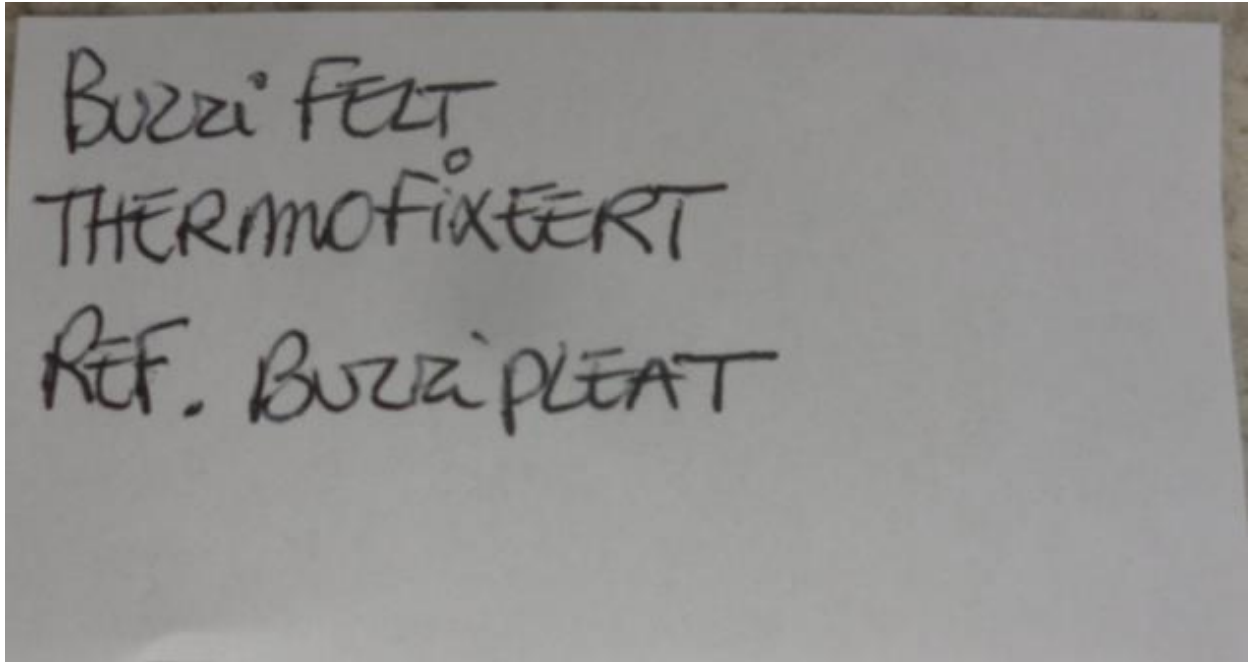 Buzzi FELT
THERMOFiXEERT
REF. Buzzi PLEAT